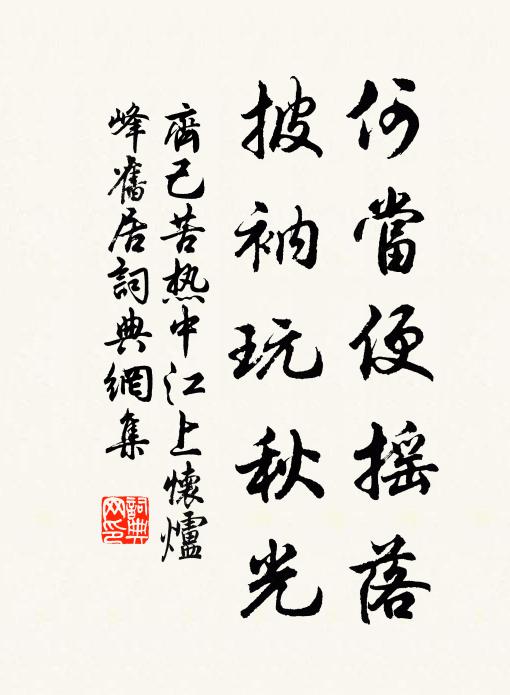 何當便摇落
披衲玩秋光
齊己苦热中江上懷爐
峰舊居詞典網集
詞典
网印